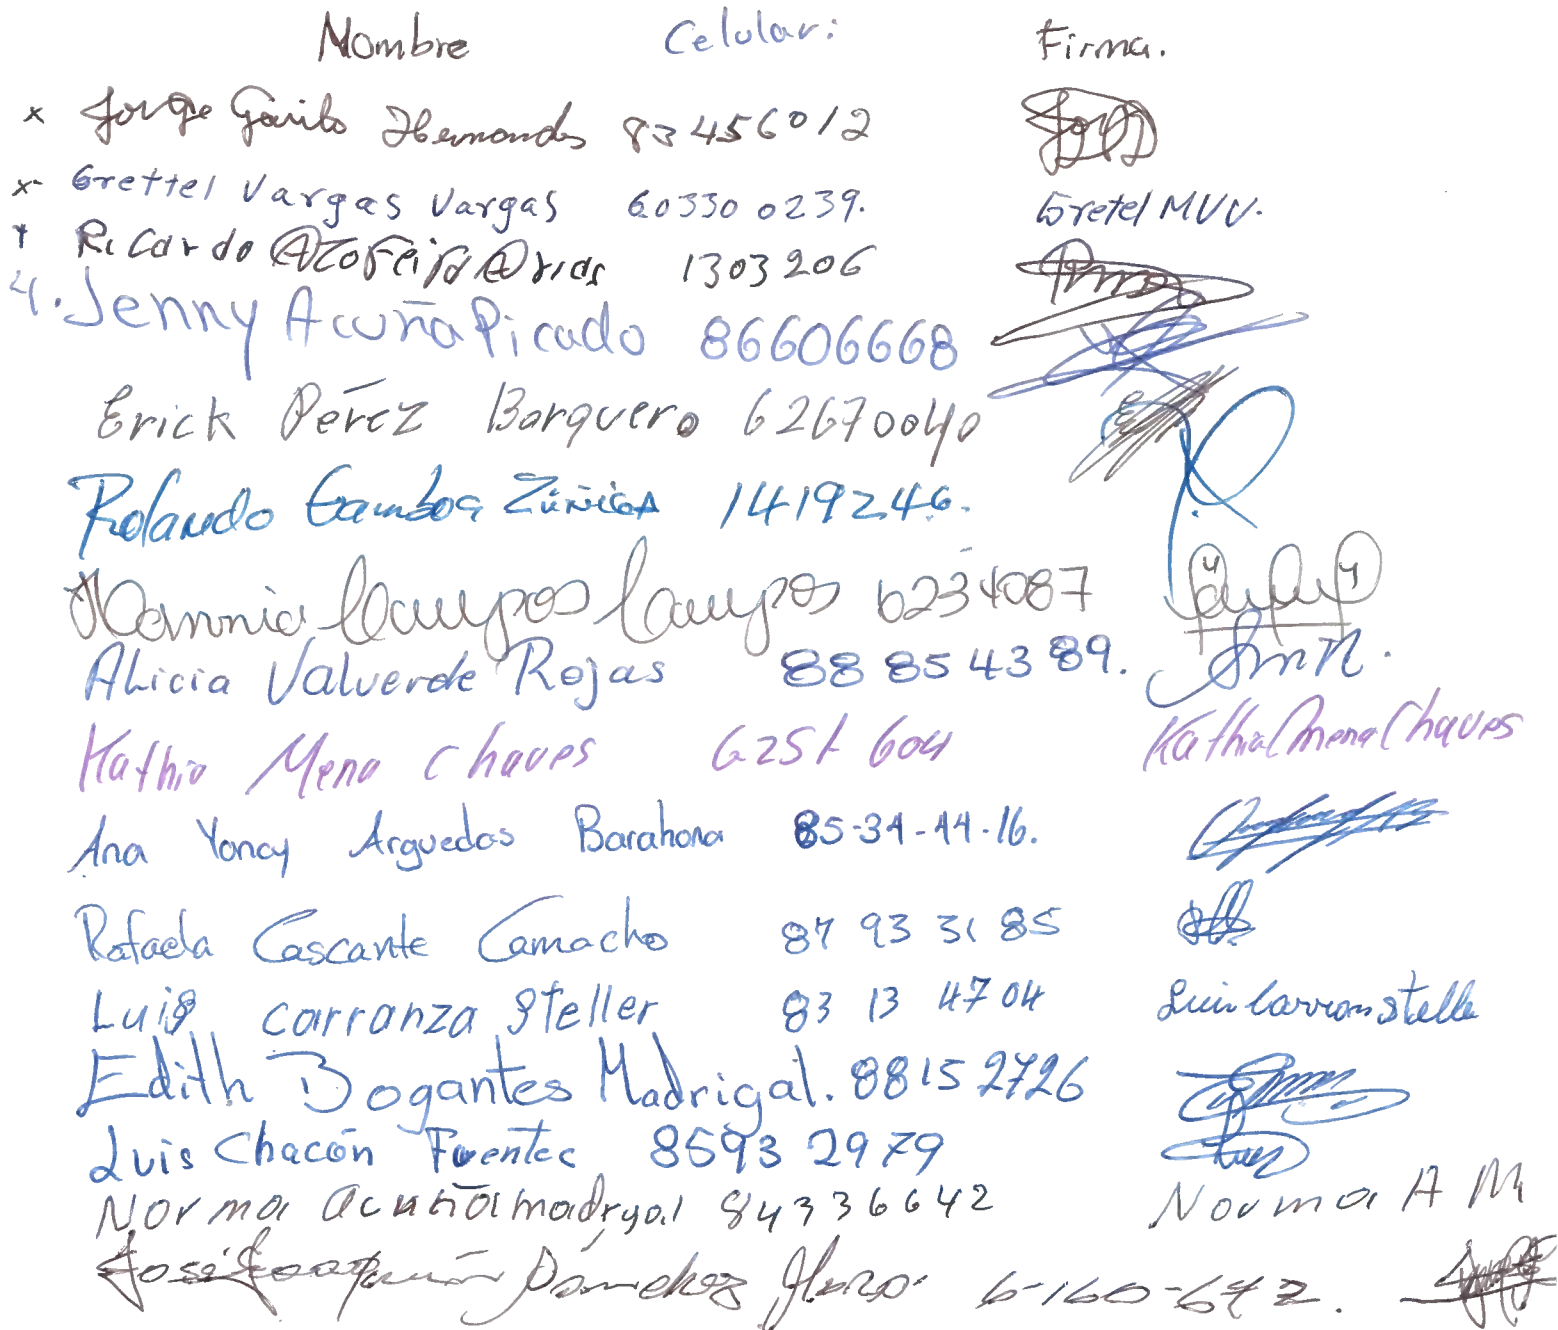 Nombre Celular: Firma.
x Jorge Garita Hernandes 83456012
x- Grettel Vargas Vargas 60330 0239. Gretel MVV.
Ricardo Azofeifa Arias 1303206
4. Jenny Acuña Picado 86606668
Erick Pérez Barquero 62670040
Rolando Gamboa Zúñiga 1419246.
Hannia Campos Campos 6234087
Alicia Valverde Rojas 88 85 43 89.
Kathia Mena Chaves 6251 604 Kathia Mena Chaves
Ana Yancy Arguedas Barahona 85-34-44-16.
Rafaela Cascante Camacho 87 93 31 85
Luis Carranza Steller 83 13 47 04 Luis Carranza Stelle
Edith Bogantes Madrigal. 8815 2726
Luis Chacón Fuentes 8593 2979
Norma acuña madrgal 84336642 Norma A M
José Joaquín Sánchez 6-160-642.